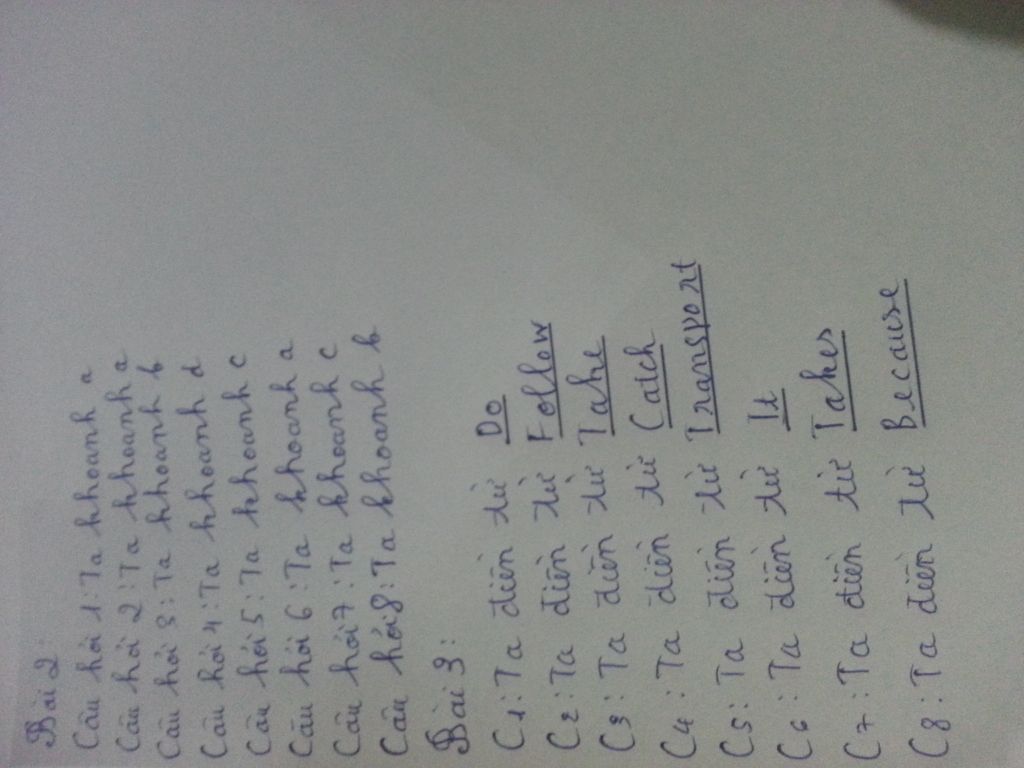 Bài 2:
Câu hỏi 1: Ta khoanh a
Câu hỏi 2: Ta khoanh a
Câu hỏi 3: Ta khoanh b
Câu hỏi 4: Ta khoanh d
Câu hỏi 5: Ta khoanh c
Câu hỏi 6: Ta khoanh a
Câu hỏi 7: Ta khoanh c
Câu hỏi 8: Ta khoanh b
Bài 3:
C1: Ta điền từ Do
C2: Ta điền từ Follow
C3: Ta điền từ Take
C4: Ta điền từ Catch
C5: Ta điền từ Transport
C6: Ta điền từ It
C7: Ta điền từ Takes
C8: Ta điền từ Because